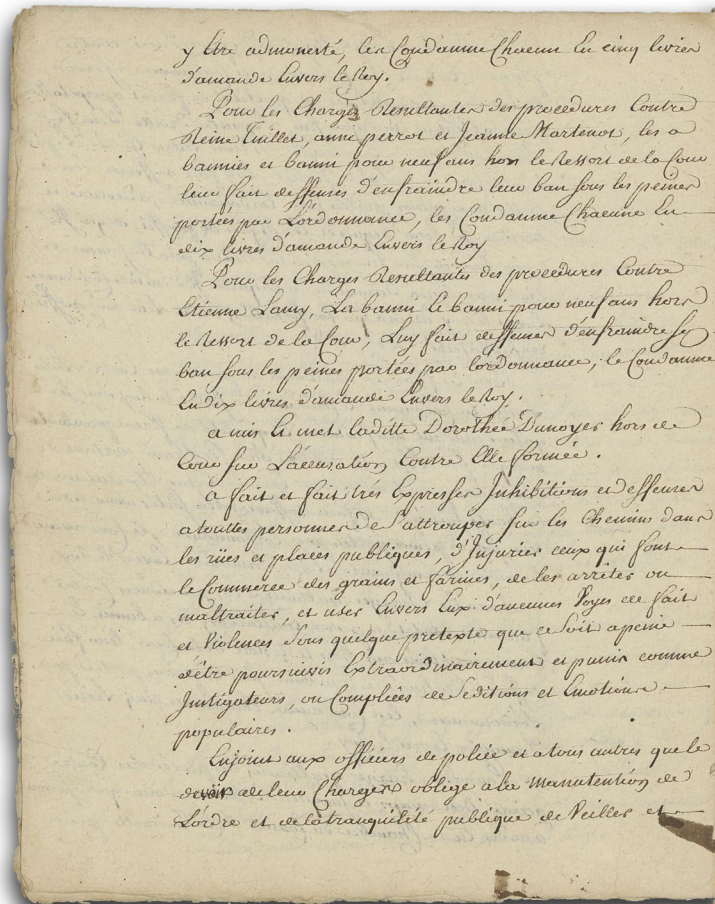 y être admonesté, les Condamne Chacun En cinq livres
d'amande Envers le Roy.
Pour les Charges Resultantes des procedures Contre
Reine Tuillet, anne perrot et Jeanne Martenot, les a
bannies et banni pour neuf ans hors le Ressort de la Cour
leur fait deffenses d'enfreindre leur ban sous les peines
portées par L'ordonnance, les Condamne Chacune En
dix livres d'amande Envers le Roy
Pour les Charges Resultantes des procedures Contre
Etienne Lamy, La banni Et banni pour neuf ans hors
le Ressort de la Cour, Luy fait deffenses d'enfreindre son
ban sous les peines portées par lordonnance, le Condamne
En dix livres d'amande Envers le Roy.
a mis Et met laditte Dorothée Dunoyer hors de
Cour sur L'accusation Contre Elle formée.
a fait et fait très Expresses Inhibitions et deffenses
a touttes personnes de s'attrouper sur les Chemins dans
les rües et places publiques, d'Injurier ceux qui font
le Commerce des grains et farines, de les arrêter ou
maltraiter, et user Envers Eux d'aucunes Voyes de fait
et Violences sous quelque pretexte que ce soit a peine
d'être poursuivis Extraordinairement et punis comme
Instigateurs, ou Complices de seditions et Emotions
populaires.
Enjoint aux officiers de police et a tous autres que le
devoir de leur Charges oblige a la manutention de
L'ordre et de la tranquilité publique de Veiller et